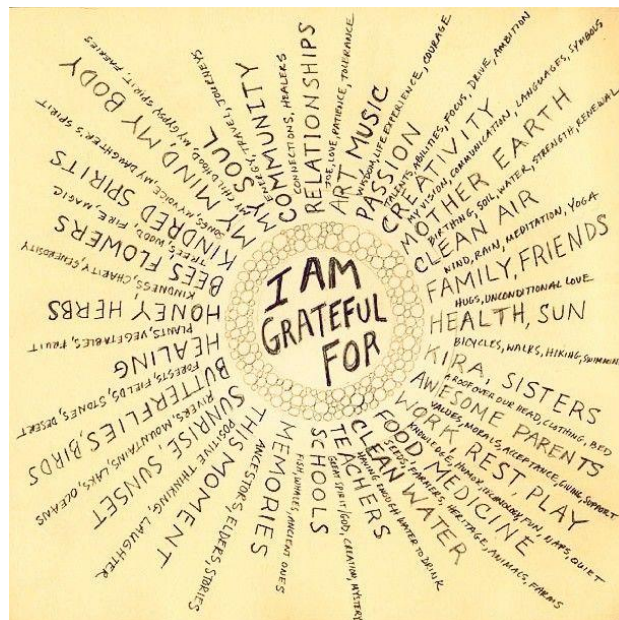 I AM
GRATEFUL
FOR
RELATIONSHIPS
JOE, LOVE, PATIENCE, TOLERANCE
ART MUSIC
WISDOM, LIFE EXPERIENCE, COURAGE
PASSION
TALENTS, ABILITIES, FOCUS, DRIVE, AMBITION
CREATIVITY
MY VISION, COMMUNICATION, LANGUAGES, SYMBOLS
MOTHER EARTH
BIRTHING, SOIL, WATER, STRENGTH, RENEWAL
CLEAN AIR
WIND, RAIN, MEDITATION, YOGA
FAMILY, FRIENDS
HUGS, UNCONDITIONAL LOVE
HEALTH, SUN
BICYCLES, WALKS, HIKING, SWIMMING
KIRA, SISTERS
A ROOF OVER OUR HEAD, CLOTHING, BED
AWESOME PARENTS
VALUES, MORALS, ACCEPTANCE, GIVING, SUPPORT
WORK, REST PLAY
KNOWLEDGE, HUMOR, TECHNOLOGY, FUN, NAPS, QUIET
FOOD, MEDICINE
SEEDS, FARMERS, HERITAGE, ANIMALS, FARMS
CLEAN WATER
HAVING ENOUGH WATER TO DRINK
TEACHERS
GREAT SPIRIT/GOD, CREATION, MYSTERY
SCHOOLS
FISH, WHALES, ANCIENT ONES
MEMORIES
ANCESTORS, ELDERS, STORIES
THIS MOMENT
POSITIVE THINKING, LAUGHTER
SUNRISE, SUNSET
RIVERS, MOUNTAINS, LAKS, OCEANS
BUTTERFLIES, BIRDS
FORESTS, FIELDS, STONES, DESERT
HEALING
PLANTS, VEGETABLES, FRUIT
HONEY HERBS
KINDNESS, CHARITY, GENEROSITY
BEES FLOWERS
TREES, WOOD, FIRE, MAGIC
KINDRED SPIRITS
SONGS, MY VOICE, MY DAUGHTER'S SPIRIT
MY MIND, MY BODY
MY CHILDHOOD, MY GYPSY SPIRIT, FAERIES
MY SOUL
ENERGY, TRAVEL, JOURNEYS
COMMUNITY
CONNECTIONS, HEALERS